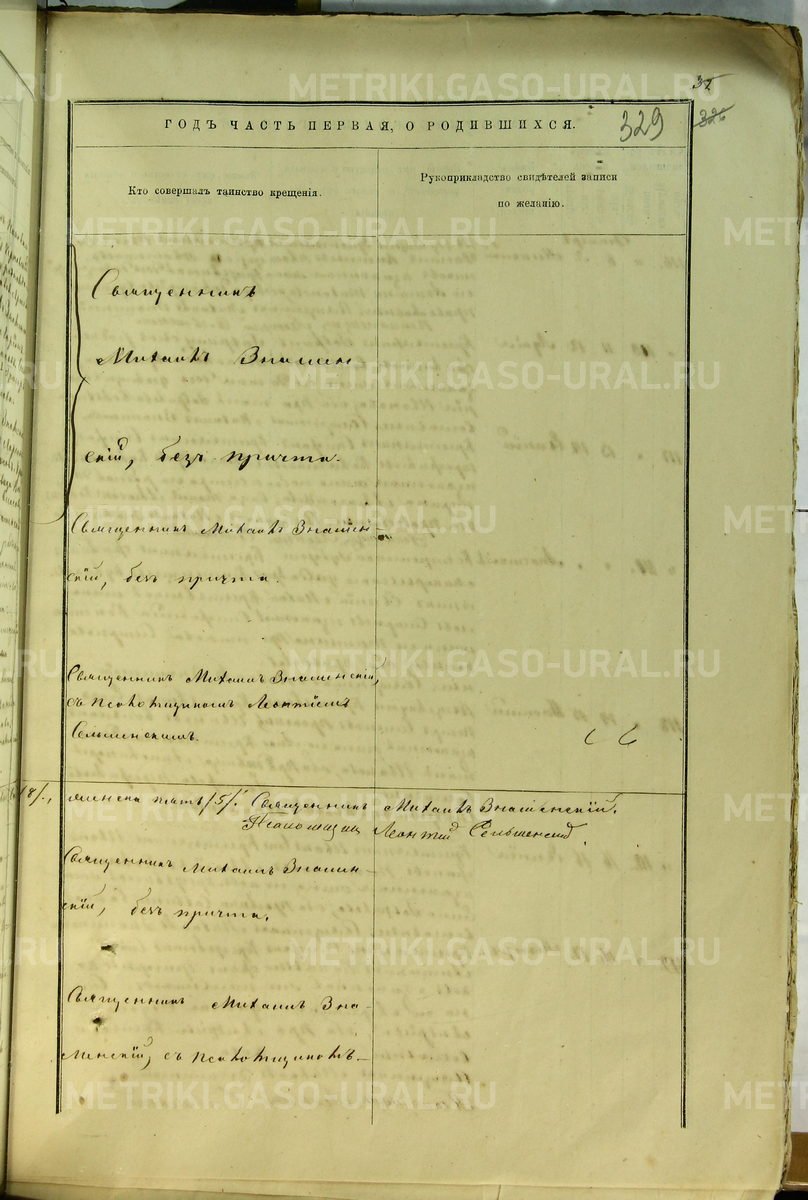 32
ГОДЪ ЧАСТЬ ПЕРВАЯ, О РОДИВШИХСЯ.
329
326
Кто совершалъ таинство крещенія.
Рукоприкладство свидѣтелей записи
по желанію.
Священникъ
Михаилъ Знамен
скій, безъ причта.
Священникъ Михаилъ Знамен-
скій, безъ причта.
Священникъ Михаилъ Знаменскій,
съ псаломщикомъ Леонтіемъ
Сельменскимъ.
18/.,
женска пять /5/. Священникъ Михаилъ Знаменскій.
Псаломщикъ Леонтій Сельменскій
Священникъ Михаилъ Знамен-
скій, безъ причта.
Священникъ Михаилъ Зна-
менскій, съ псаломщикомъ
METRIKI.GASO-URAL.RU